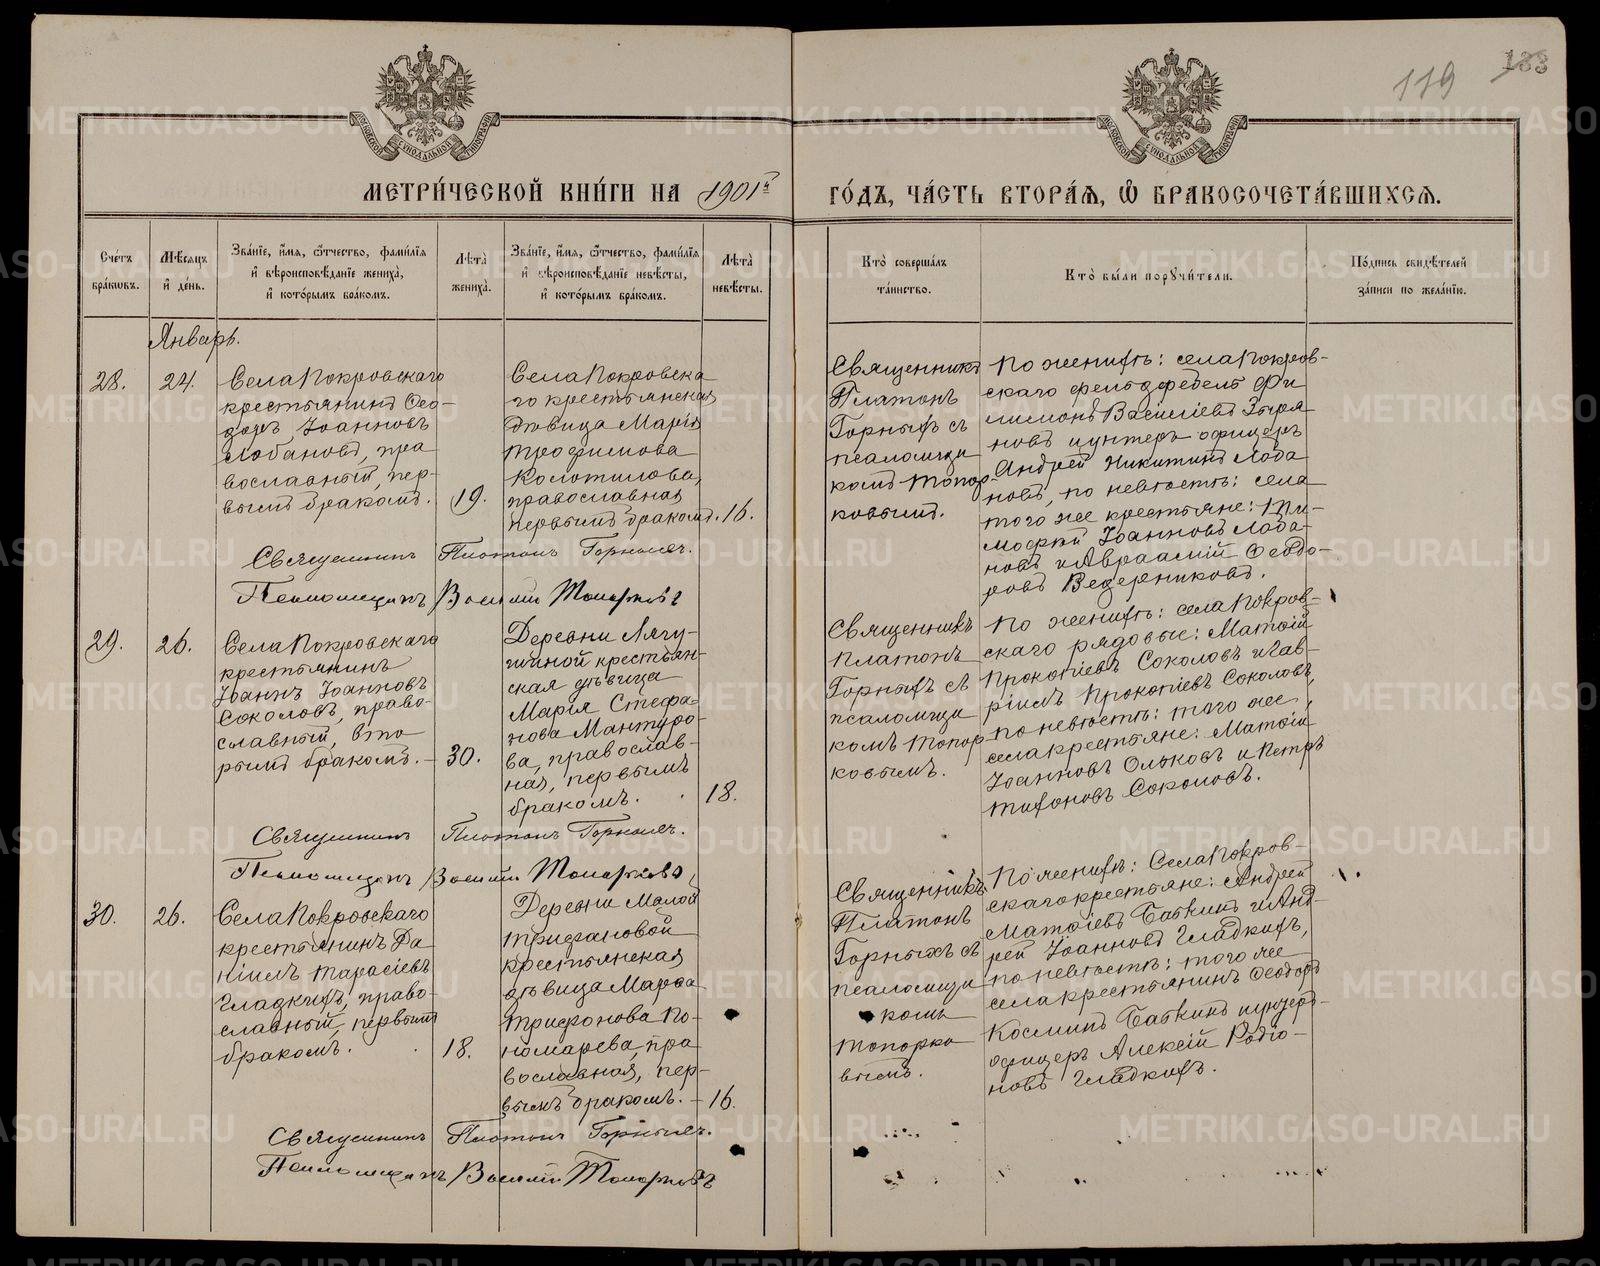 119
133
МЕТРИ́ЧЕСКОЙ КНИ́ГИ НА 1901й ГО́ДЪ, ЧА́СТЬ ВТОРА́Я, Ѽ БРАКОСОЧЕТА́ВШИХСЯ.
Сче́тъ бра́ковъ.
Мѣ́сяцъ и҆ де́нь.
Зва́нїе, и҆́мя, ѻ҆́тчество, фами́лїя
и҆ вѣроисповѣ́данїе жениха̀,
и҆ кото́рымъ бра́комъ.
Лѣта̀ жениха̀.
Зва́нїе, и҆́мя, ѻ҆́тчество, фами́лїя
и҆ вѣроисповѣ́данїе невѣ́сты,
и҆ кото́рымъ бра́комъ.
Лѣта̀ невѣ́сты.
Кто̀ соверша́лъ
та́инство.
Кто̀ бы́ли порꙋчи́тели.
По́дпись свидѣ́телей
за́писи по жела́нїю.
Январь.
28.
24.
Села Покровскаго
крестьянинъ Ѳео-
доръ Іоанновъ
Лобановъ, пра
вославный, пер-
вымъ бракомъ.
19.
Села Покровска
го крестьянская
дѣвица Марія
Трофимова
Колотилова,
православная
первымъ бракомъ.
16.
Священникъ
Платонъ
Горныхъ съ
псаломщи
комъ Топор-
ковымъ.
По женихѣ: села Покров-
скаго фельдфебель Фи
лимонъ Васильевъ Зыря
новъ и унтеръ-офицеръ
Андрей Никитинъ Лоба
новъ, по невѣстѣ: села
того же крестьяне: Ти-
моѳей Іоанновъ Лоба-
новъ и Авраамій Ѳеодо-
ровъ Ведерниковъ.
Священникъ Платонъ Горныхъ.
Псаломщикъ Василій Топорковъ
29.
26.
Села Покровскаго
крестьянинъ
Іоаннъ Іоанновъ
Соколовъ, право-
славный, вто
рымъ бракомъ.
30.
Деревни Лягу-
шиной крестьян-
ская дѣвица
Марія Стефа-
нова Мантуро-
ва, православ-
ная, первымъ
бракомъ.
18.
Священникъ
Платонъ
Горныхъ съ
псаломщи
комъ Топор
ковымъ.
По женихѣ: села Покров-
скаго рядовые: Матѳій
Прокопіевъ Соколовъ и Гав-
ріилъ Прокопіевъ Соколовъ,
по невѣстѣ: того же
села крестьяне: Матѳій
Іоанновъ Ольковъ и Петръ
Тифоновъ Соколовъ.
Священникъ Платонъ Горныхъ.
Псаломщикъ Василій Топорковъ,
30.
26.
Села Покровскаго
крестьянинъ Да
ніилъ Тарасіевъ
Гладкихъ, право-
славный, первымъ
бракомъ.
18.
Деревни Малой
Трифановой
крестьянская
дѣвица Марѳа
Трифонова По-
номарева, пра
вославная, пер-
вымъ бракомъ.
16.
Священникъ
Платонъ
Горныхъ съ
псаломщи
комъ
Топорко
вымъ.
По женихѣ: Села Покров-
скаго крестьяне: Андрей
Матѳіевъ Бабкинъ и Анд-
рей Іоанновъ Гладкихъ,
по невѣстѣ: того же
села крестьянинъ Ѳеодоръ
Косминъ Бабкинъ и унтеръ-
офицеръ Алексій Родіо-
новъ Гладкихъ.
Священникъ Платонъ Горныхъ.
Псаломщикъ Василій Топорковъ
METRIKI.GASO-URAL.RU